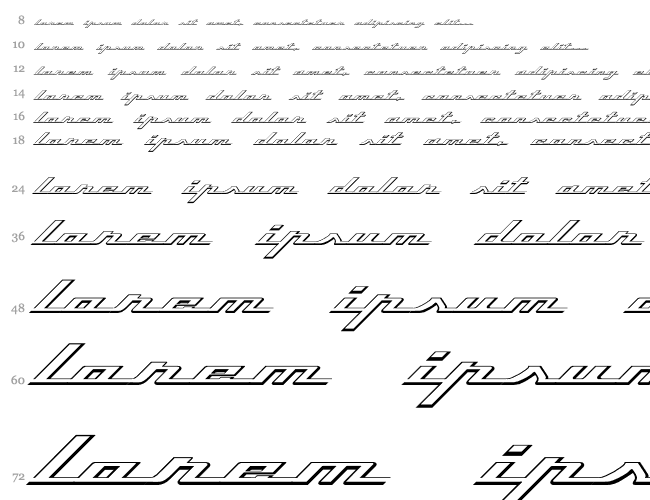 8 lorem ipsum dolor sit amet, consectetuer adipiscing elit...
10 lorem ipsum dolor sit amet, consectetuer adipiscing elit...
12 lorem ipsum dolor sit amet, consectetuer adipiscing el
14 lorem ipsum dolor sit amet, consectetuer adip
16 lorem ipsum dolor sit amet, consectetue
18 lorem ipsum dolor sit amet, consect
24 lorem ipsum dolor sit amet
36 lorem ipsum dolor
48 lorem ipsum d
60 lorem ipsum
72 lorem ips